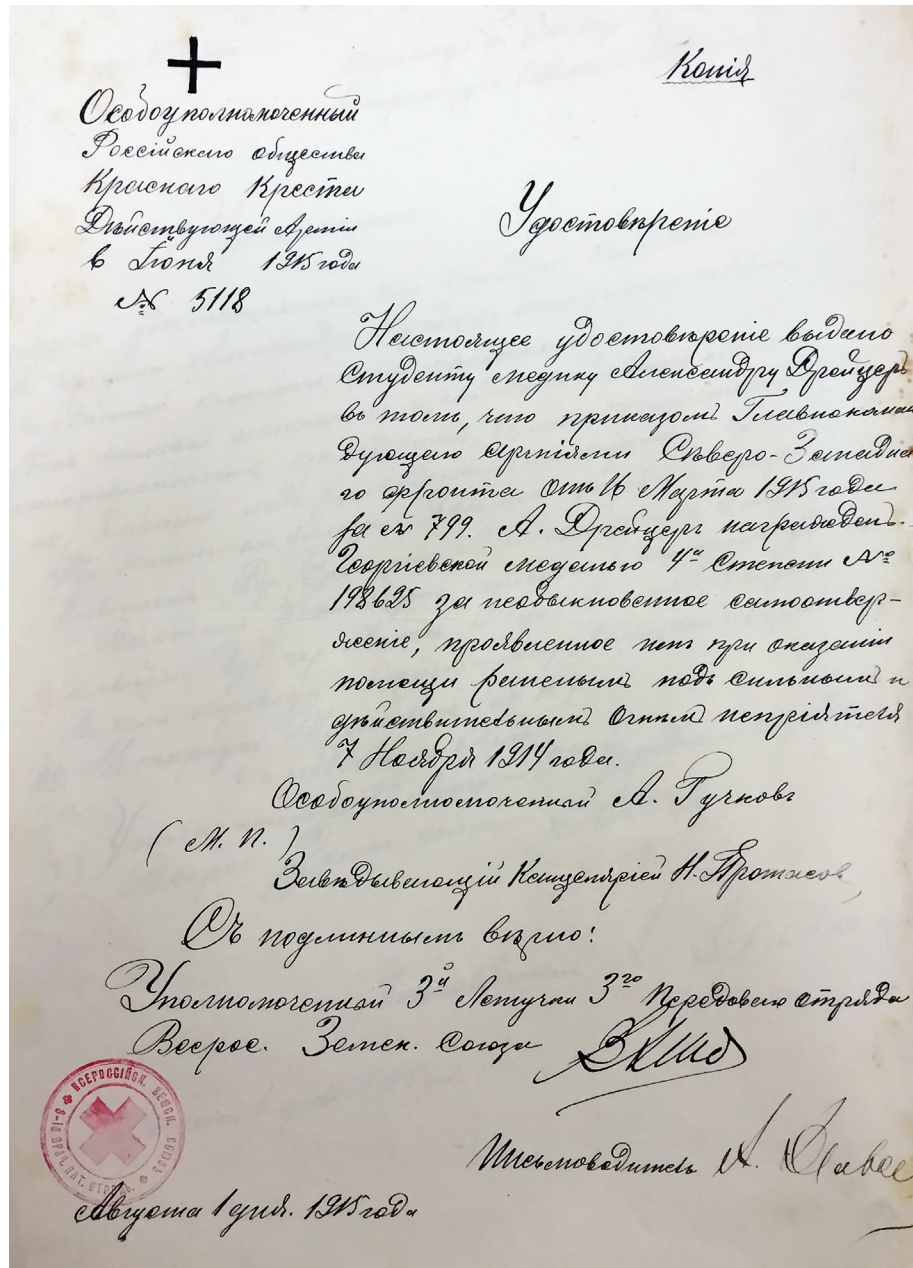 Копія
Особоуполномоченный
Россійскаго общества
Краснаго Креста
Дѣйствующей Арміи
6 Іюня 1915 года
№ 5118
Удостовѣреніе
Настоящее удостовѣреніе выдано
студенту медику Александру Дрейцеръ
въ томъ, что приказомъ Главнокоман
дующаго арміями Сѣверо-Западна
го фронта отъ 16 Марта 1915 года
за № 799. А. Дрейцеръ награжденъ
Георгіевской медалью 4й степени №
198625 за необыкновенное самоотвер-
женіе, проявленное имъ при оказаніи
помощи раненымъ подъ сильнымъ и
дѣйствительнымъ огнемъ непріятеля
7 Ноября 1914 года.
Особоуполномоченный А. Гучковъ
(М. П.)
Завѣдывающій Канцеляріей Н. Протасов
Съ подлиннымъ вѣрно:
Уполномоченный 3й Летучки 3го Передового отряда
Всерос. Земск. Союза
ВСЕРОССІЙСК. ЗЕМСК. СОЮЗЪ
3-й ВРАЧ. ПИТ. ОТРЯДЪ
Письмоводитель А.
Августа 1 дня. 1915 года